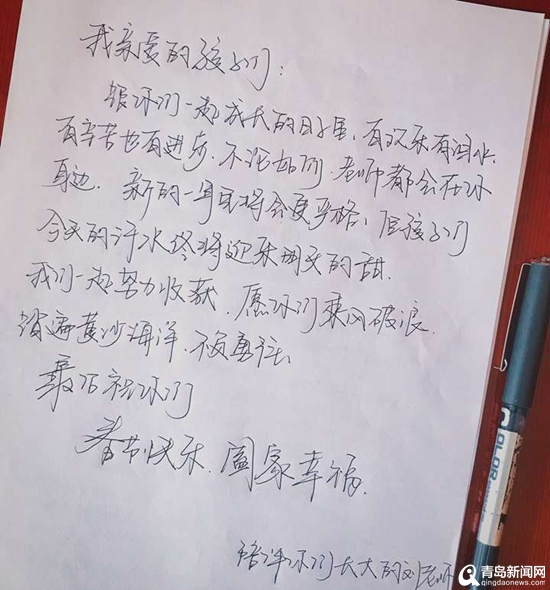 我亲爱的孩子们:
跟你们一起成长的日子里,有欢乐有泪水.
有辛苦也有进步.不论如何,老师都会在你
身边.新的一年里将会更严格,但孩子们
今天的汗水终将迎来明天的甜.
我们一起努力收获.愿你们乘风破浪.
踏遍黄沙海洋.不负勇往.
最后祝你们
春节快乐.阖家幸福.
陪伴你们长大的刘老师
青岛新闻网
qingdaonews.com